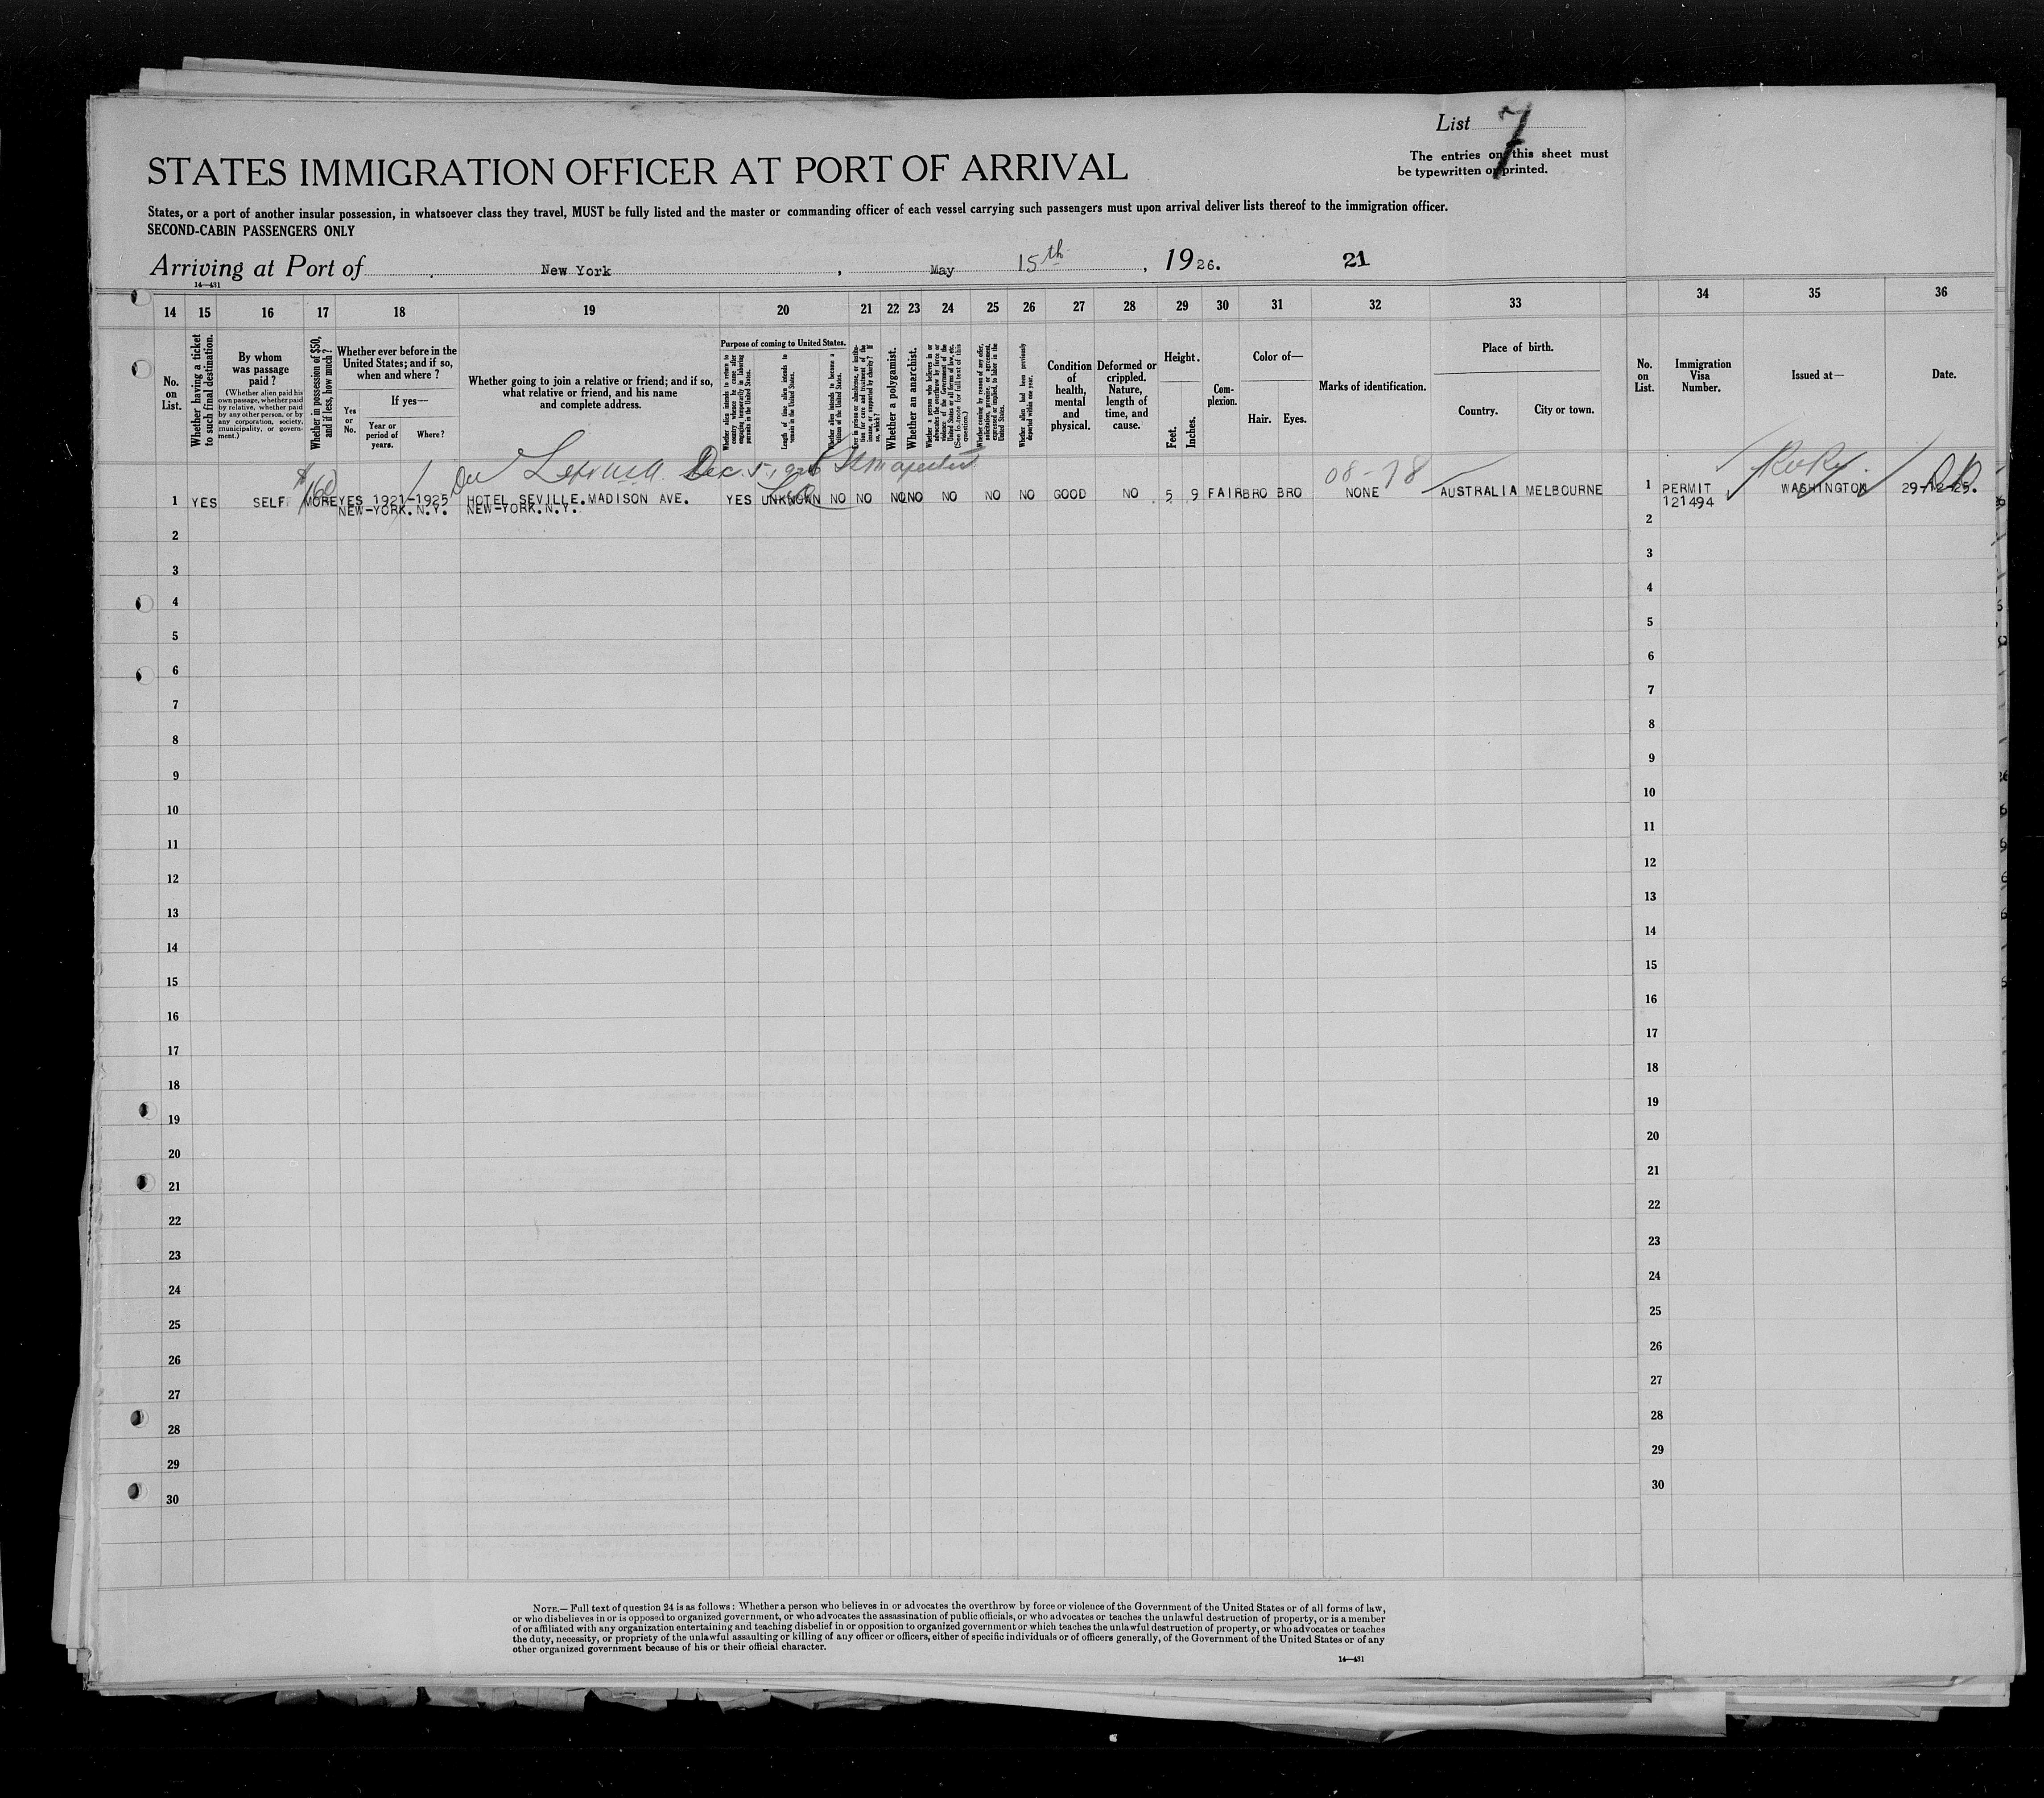 List 7
The entries on this sheet must
be typewritten or printed.
STATES IMMIGRATION OFFICER AT PORT OF ARRIVAL
States, or a port of another insular possession, in whatsoever class they travel, MUST be fully listed and the master or commanding officer of each vessel carrying such passengers must upon arrival deliver lists thereof to the immigration officer.
SECOND-CABIN PASSENGERS ONLY
Arriving at Port of New York, May 15th, 1926. 21
14—431
14 15 16 17 18 19 20 21 22 23 24 25 26 27 28 29 30 31 32 33 34 35 36
No. on List.
Whether having a ticket to such final destination.
By whom was passage paid?
(Whether alien paid his own passage, whether paid by relative, whether paid by any other person, or by any corporation, society, municipality, or government.)
Whether in possession of $50, and if less, how much?
Whether ever before in the United States; and if so, when and where?
Yes or No.
If yes—
Year or period of years.
Where?
Whether going to join a relative or friend; and if so, what relative or friend, and his name and complete address.
Purpose of coming to United States.
Whether alien intends to return to country whence he came after engaging temporarily in laboring pursuits in the United States.
Length of time alien intends to remain in the United States.
Whether alien intends to become a citizen of the United States.
Ever in prison or almshouse, or institution for care and treatment of the insane, or supported by charity? If so, which?
Whether a polygamist.
Whether an anarchist.
Whether a person who believes in or advocates the overthrow by force or violence of the Government of the United States or all forms of law, etc. (See footnote for full text of this question.)
Whether coming by reason of any offer, solicitation, promise, or agreement, expressed or implied, to labor in the United States.
Whether alien had been previously deported within one year.
Condition of health, mental and physical.
Deformed or crippled. Nature, length of time, and cause.
Height.
Feet. Inches.
Complexion.
Color of—
Hair. Eyes.
Marks of identification.
Place of birth.
Country. City or town.
No. on List.
Immigration Visa Number.
Issued at—
Date.
Dec. 5, 1926
$160
08-78
1 YES SELF MORE YES 1921-1925 HOTEL SEVILLE.MADISON AVE. YES UNKNOWN NO NO NO NO NO NO NO GOOD NO 5 9 FAIR BRO BRO NONE AUSTRALIA MELBOURNE 1 PERMIT WASHINGTON 29-12-25.
NEW-YORK.N.Y. NEW-YORK.N.Y. 121494
2 2
3 3
4 4
5 5
6 6
7 7
8 8
9 9
10 10
11 11
12 12
13 13
14 14
15 15
16 16
17 17
18 18
19 19
20 20
21 21
22 22
23 23
24 24
25 25
26 26
27 27
28 28
29 29
30 30
NOTE.—Full text of question 24 is as follows: Whether a person who believes in or advocates the overthrow by force or violence of the Government of the United States or of all forms of law,
or who disbelieves in or is opposed to organized government, or who advocates the assassination of public officials, or who advocates or teaches the unlawful destruction of property, or is a member
of or affiliated with any organization entertaining and teaching disbelief in or opposition to organized government or which teaches the unlawful destruction of property, or who advocates or teaches
the duty, necessity, or propriety of the unlawful assaulting or killing of any officer or officers, either of specific individuals or of officers generally, of the Government of the United States or of any
other organized government because of his or their official character.
14—431